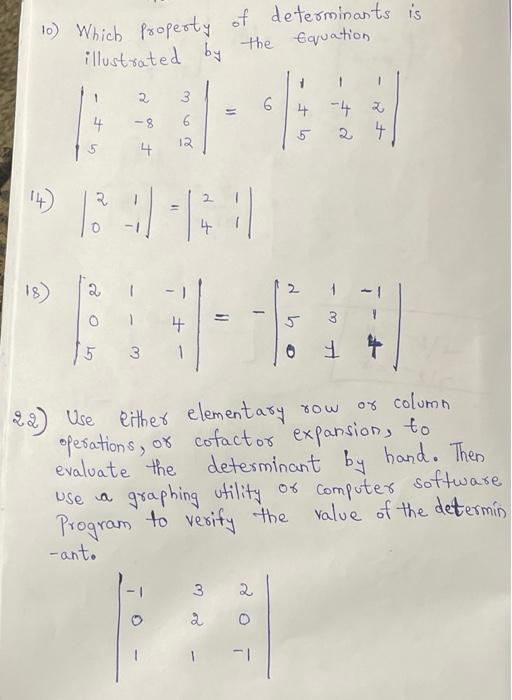 10) Which property of determinants is
illustrated by the Equation
| 1 2 3 | = 6 | 1 1 1 |
| 4 -8 6 | | 4 -4 2 |
| 5 4 12 | | 5 2 4 |
14) | 2 1 | = | 2 1 |
| 0 -1 | | 4 1 |
18) | 2 1 -1 | = - | 2 1 -1 |
| 0 1 4 | | 5 3 1 |
| 5 3 1 | | 0 1 4 |
22) Use either elementary row or column
operations, or cofactor expansion, to
evaluate the determinant by hand. Then
use a graphing utility or computer software
Program to verify the value of the determin
-ant.
| -1 3 2 |
| 0 2 0 |
| 1 1 -1 |